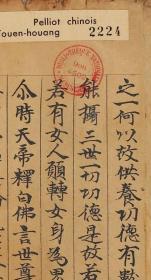 Pelliot chinois
Touen-houang
2224
之一何以故供養功德有數
能攝三世切功德是故若
若有女人願轉女身為男
尒時天帝釋白佛言世尊